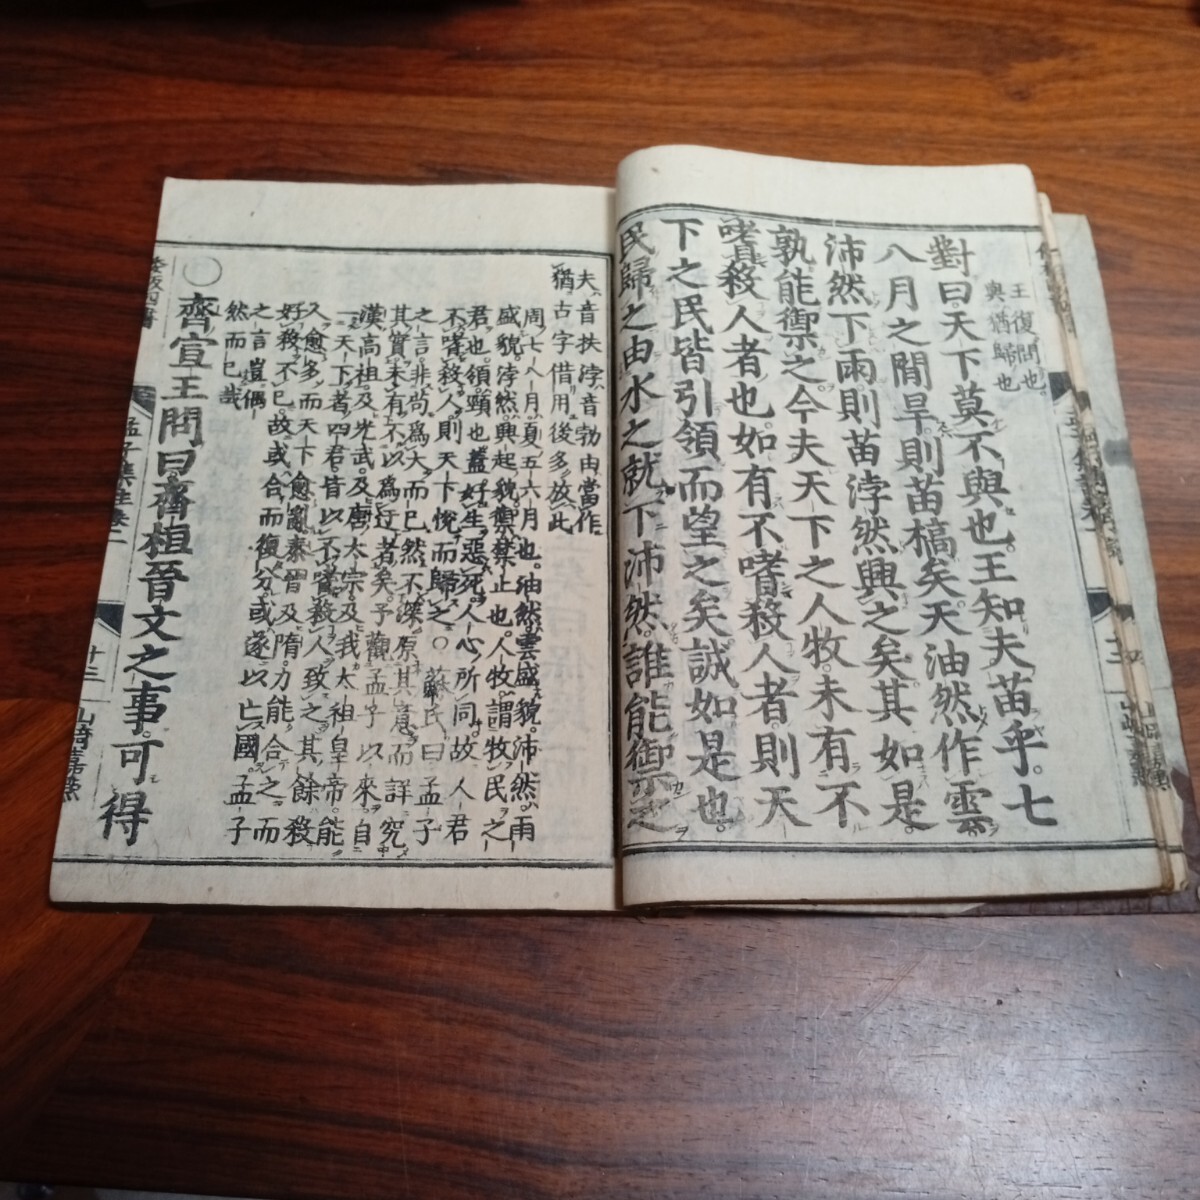 王復問也
與猶歸也
對曰天下莫不與也王知夫苗乎七
八月之間旱則苗槁矣天油然作雲
沛然下雨則苗浡然興之矣其如是
孰能禦之今夫天下之人牧未有不
嗜殺人者也如有不嗜殺人者則天
下之民皆引領而望之矣誠如是也
民歸之由水之就下沛然誰能禦之
夫音扶浡音勃由當作
猶古字借用後多放此
周七八月夏五六月也油然雲盛貌沛然雨
盛貌浡然興起貌禦禁止也人牧謂牧民之
君也領頸也蓋好生惡死人心所同故人君
不嗜殺人則天下悅而歸之〇蘇氏曰孟子
之言非苟爲大而已然不深原其意而詳究
其實未有不以爲迂者矣予觀孟子以來自
漢高祖及光武及唐太宗及我太祖皇帝能
一天下者四君皆以不嗜殺人致之其餘殺
人愈多而天下愈亂秦晉及隋力能合之而
好殺不已故或合而復分或遂以亡國孟子
之言豈偶
然而已哉
〇齊宣王問曰齊桓晉文之事可得
倭板四書
孟子集註卷一
十三
山崎嘉點